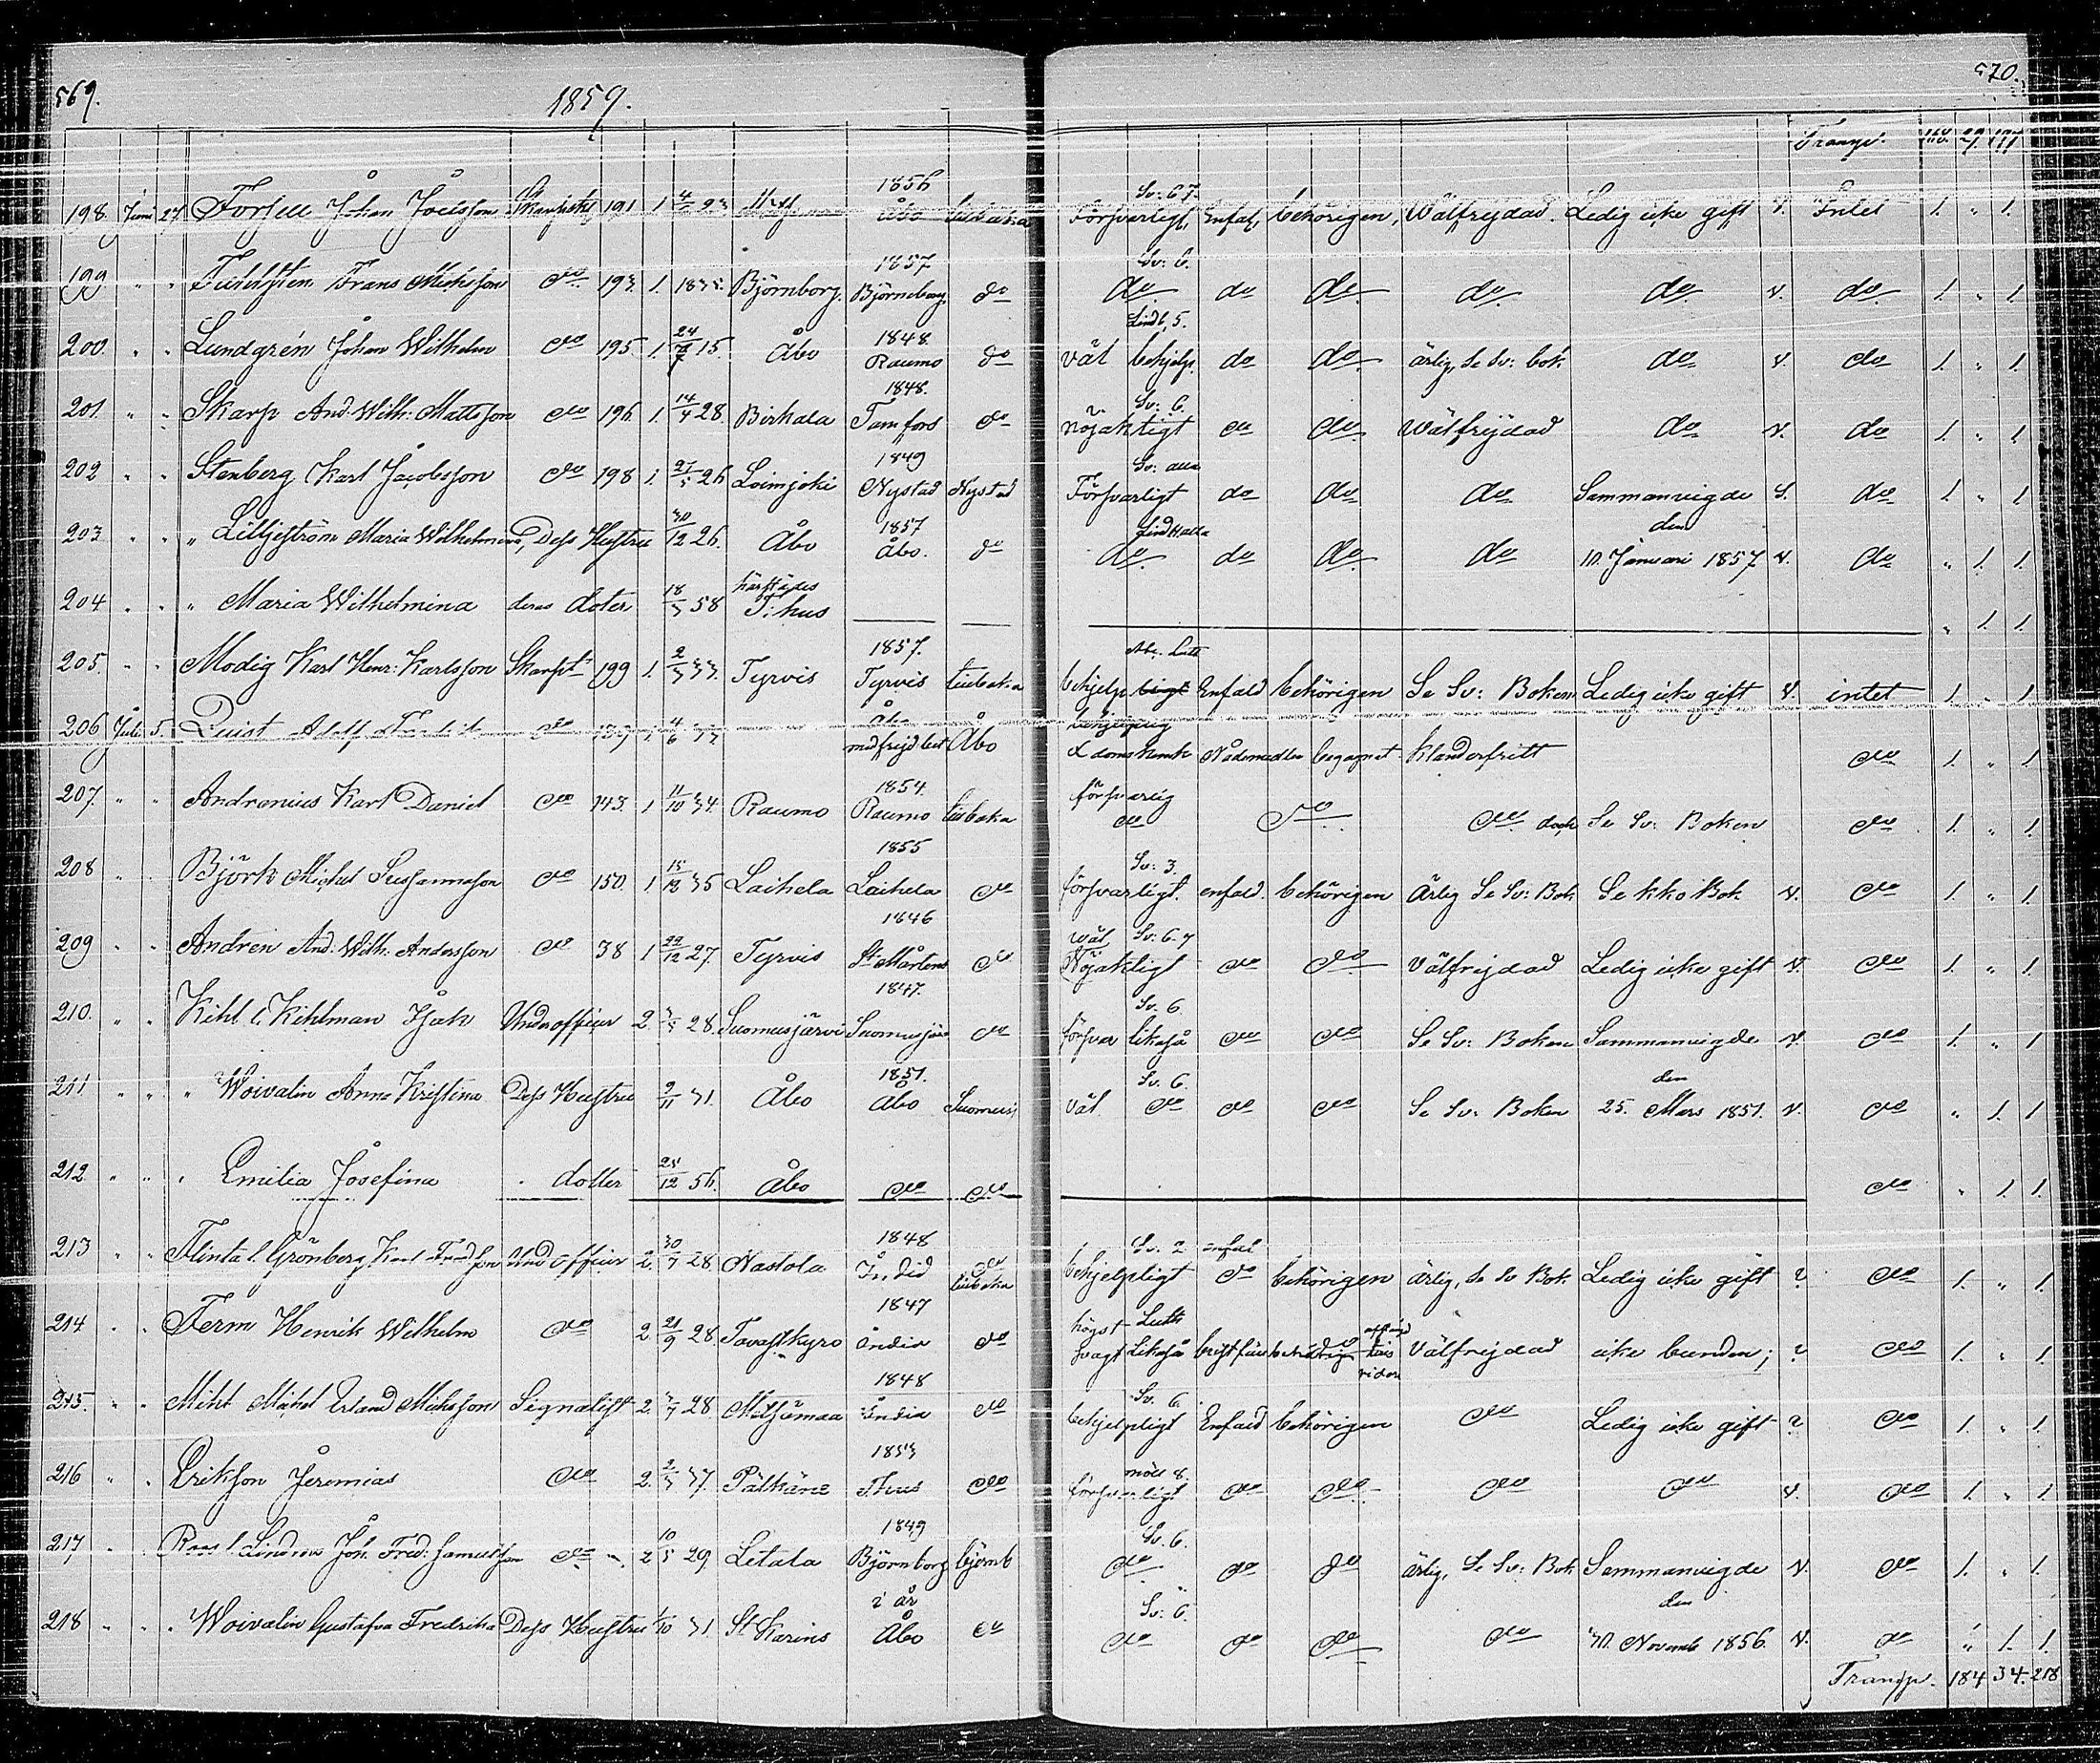 569.
1859.
570.
Transp. 168. 29. 197
198. Juni 27 Johan Joelsson 191 1 4 23 1856 Åbo Sv: 6 7. Försvarligt, Enfal, behörigen, Wälfrejdad. Ledig icke gift v. Intet 1. " 1.
199 " " Frans Michsson do 193. 1. 1835. Björnborg. 1857 Björneborg. do Sv: 6. do do do do do v. do 1. " 1
200. " " Lundgrén Johan Wilhelm do 195. 1. 24/7 15. Åbo 1848 Raumo do Lindb. 5. väl behjelp. do do ärlig, Se Sv: bok do v. do 1. " 1
201. " " Skarp And. Wilh: Mattsson do 196 1. 14/4 28. Birkala 1848. Tamfors do Sv: 6. nöjaktigt do do Wälfrejdad do v. do 1. " 1
202 " " Stenberg Karl Jacobsson do 198 1. 27/5 26 Loimjoki 1849 Nystad Nystad Sv: alla Försvarligt do do do Sammanvigde S. do 1. " 1
203 " " " Lilljeström Maria Wilhelmina, Dess Hustru 30/12 26. Åbo 1857 Åbo. do Lindb. alla do do do do den 10. Januari 1857 v. do " 1. 1
204 " " " Maria Wilhelmina deras doter 18/3 58 härstädes T:hus " 1. 1.
205. " " Modig Karl Henr: Karlsson Skarpt 199 1. 2/3 33. Tyrvis 1857. Tyrvis tiubaka Abc. Luth behjelpligt Enfald behörigen Se Sv: Boken Ledig icke gift v. intet 1. " 1
206 Juli 5. Quist Adolf do 139 1 4/6 33 Åbo med frejd bet Åbo Nådemedlen begagnat Klanderfritt do 1. " 1
207. " " Andronius Karl Daniel do 143. 1 11/10 34. Raumo 1854. Raumo tiubaka försvarlig do do do dock Se Sv: Boken do 1. " 1.
208 " " Björk Michel Sussannasson do 150. 1 15/12 35 Laihela 1855 Laihela do Sv: 3. försvarligt. enfald. behörigen Ärlig Se Sv: Bok Se kko Bok v. do 1. " 1
209 " " Andrén And: Wilh: Andersson do 38 1 22/12 27. Tyrvis 1846 St Mårtens do wäl Sv: 6. 7 Nöjaktigt do do Välfrejdad Ledig icke gift v. do 1. " 1
210. " " Kihl l. Kihlman Isak Underofficer 2. 3/5 28. Suomusjärvi 1847. Suomusjär do Sv. 6 försvar likaså do do Se Sv: Boken Sammanvigde v. do 1. " 1
211 " " " Woivalin Anna Kristina Dess Hustru 9/11 31. Åbo 1851. Åbo Suomusj Sv. 6. väl do do do Se Sv: Boken den 25. Mars 1851. v. do " 1. 1
212. " " " Emilia Josefina " dotter 25/12 56. Åbo do do do " 1. 1.
213 " " Flinta l. Grönberg Karl Fredsson Und Officer 2. 30/7 28. Nastola 1848 Indid do tiubaka Sv: 2 enfal behjelpligt do behörigen ärlig, Se Sv Bok Ledig icke gift ? do 1. " 1.
214 " " Ferm Henrik Wilhelm do 2. 21/9 28. Tavastkyro 1847 Indid do högst Luth svagt likaså Välfrejdad icke bunden; ? do 1. " 1
215. " " Mihl Michel Erland Michsson Signalist 2. 3/7 28. 1848 Indid do Sv. 6. behjelpligt Enfald behörigen do Ledig icke gift ? do 1. " 1
216 " " Eriksson Jeremias do 2. 2/3 37. Pälkäne 1853 T.hus do möll 8. försvarligt do do do do v. do 1. " 1
217 " " Ross l Lindros Joh. Fred: Samuelsson do 2 10/5 29. Letala 1849 Björnborg björnb Sv. 6. do do do ärlig, Se Sv: Bok Sammanvigde v. do 1. " 1
218 " " " Woivalin Gustafva Fredrika Dess Hustru 1/10 31 St Karins i år Åbo do Sv: 6. do do do do den 30. Novemb 1856. v. do " 1. 1
Transp. 184 34. 218